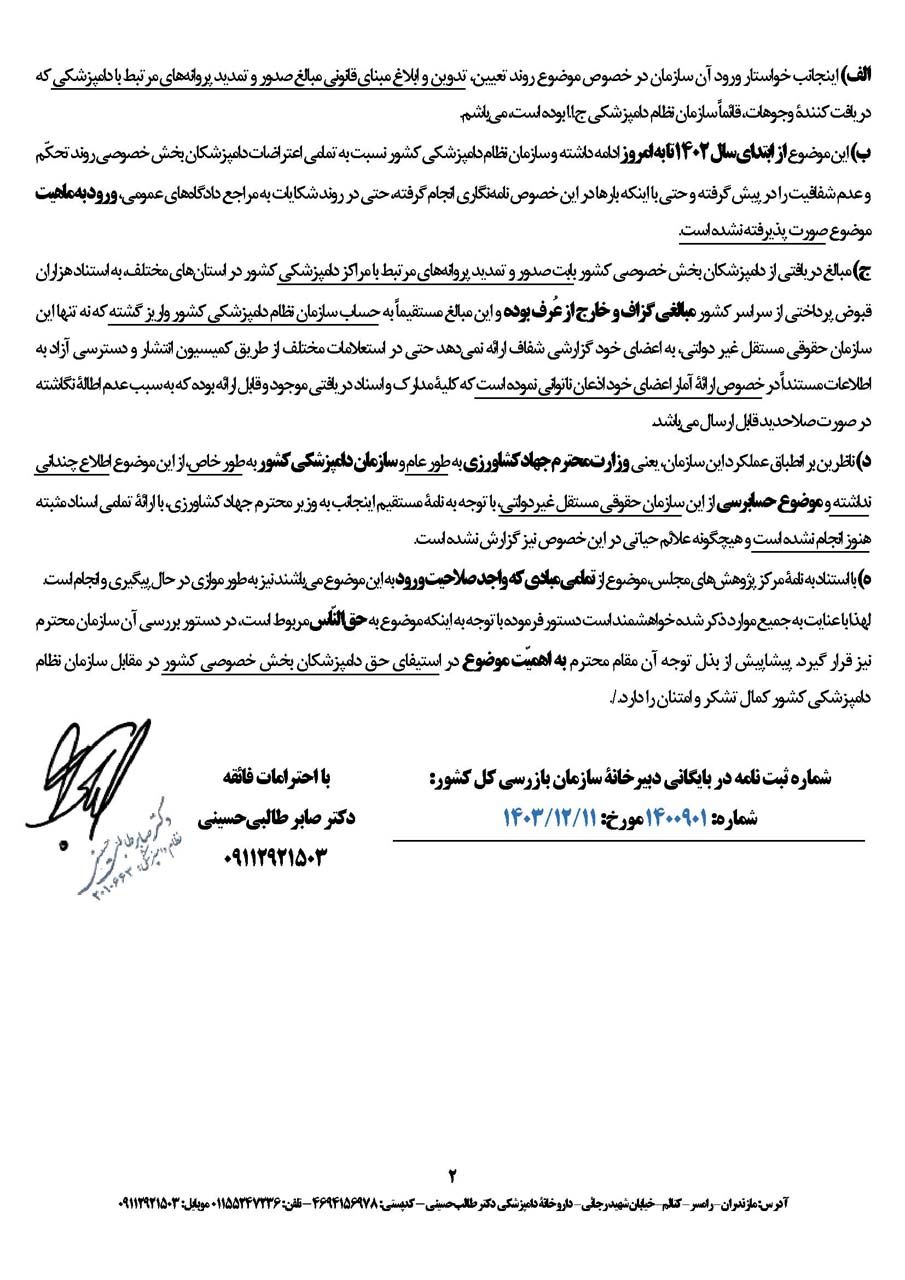 الف) اینجانب خواستار ورود آن سازمان در خصوص موضوع روند تعیین، تدوین و ابلاغ مبنای قانونی مبالغ صدور و تمدید پروانه‌های مرتبط با دامپزشکی که
دریافت کنندهٔ وجوهات، قائماً سازمان نظام دامپزشکی ج.ا.ا بوده است، می‌باشم.
ب) این موضوع از ابتدای سال ۱۴۰۲ تا به امروز ادامه داشته و سازمان نظام دامپزشکی کشور نسبت به تمامی اعتراضات دامپزشکان بخش خصوصی روند تحکّم
و عدم شفافیت را در پیش گرفته و حتی با اینکه بارها در این خصوص نامه‌نگاری انجام گرفته، حتی در روند شکایات به مراجع دادگاه‌های عمومی، ورود به ماهیت
موضوع صورت پذیرفته نشده است.
ج) مبالغ دریافتی از دامپزشکان بخش خصوصی کشور بابت صدور و تمدید پروانه‌های مرتبط با مراکز دامپزشکی کشور در استان‌های مختلف، به استناد هزاران
قبوض پرداختی از سراسر کشور مبالغی گزاف و خارج از عُرف بوده و این مبالغ مستقیماً به حساب سازمان نظام دامپزشکی کشور واریز گشته که نه تنها این
سازمان حقوقی مستقل غیر دولتی، به اعضای خود گزارشی شفاف ارائه نمی‌دهد حتی در استعلامات مختلف از طریق کمیسیون انتشار و دسترسی آزاد به
اطلاعات مستنداً در خصوص ارائهٔ آمار اعضای خود اذعان ناتوانی نموده است که کلیهٔ مدارک و اسناد دریافتی موجود و قابل ارائه بوده که به سبب عدم اطالهٔ نگاشته
در صورت صلاحدید قابل ارسال می‌باشد.
د) ناظرین بر انطباق عملکرد این سازمان، یعنی وزارت محترم جهاد کشاورزی به طور عام و سازمان دامپزشکی کشور به طور خاص، از این موضوع اطلاع چندانی
نداشته و موضوع حسابرسی از این سازمان حقوقی مستقل غیردولتی، با توجه به نامهٔ مستقیم اینجانب به وزیر محترم جهاد کشاورزی، با ارائهٔ تمامی اسناد مثبته
هنوز انجام نشده است و هیچگونه علائم حیاتی در این خصوص نیز گزارش نشده است.
ه) با استناد به نامهٔ مرکز پژوهش‌های مجلس، موضوع از تمامی مبادی که واجد صلاحیت ورود به این موضوع می‌باشند نیز به طور موازی در حال پیگیری و انجام است.
لهذا با عنایت به جمیع موارد ذکر شده خواهشمند است دستور فرموده با توجه به اینکه موضوع به حق‌النّاس مربوط است، در دستور بررسی آن سازمان محترم
نیز قرار گیرد. پیشاپیش از بذل توجه آن مقام محترم به اهمیّت موضوع در استیفای حق دامپزشکان بخش خصوصی کشور در مقابل سازمان نظام
دامپزشکی کشور کمال تشکر و امتنان را دارد./.
شماره ثبت نامه در بایگانی دبیرخانهٔ سازمان بازرسی کل کشور:
شماره: ۱۴۰۰۹۰۱ مورخ: ۱۴۰۳/۱۲/۱۱
با احترامات فائقه
دکتر صابر طالبی‌حسینی
۰۹۱۱۲۹۲۱۵۰۳
دکتر صابر طالبی حسینی
نظام دامپزشکی: ۲۰۱۰۶۶۳
۲
آدرس: مازندران – رامسر – کتالم – خیابان شهید رجائی – داروخانهٔ دامپزشکی دکتر طالب‌حسینی – کدپستی: ۴۶۹۴۱۵۶۹۷۸ – تلفن: ۰۱۱۵۵۲۴۷۲۳۶ موبایل: ۰۹۱۱۲۹۲۱۵۰۳